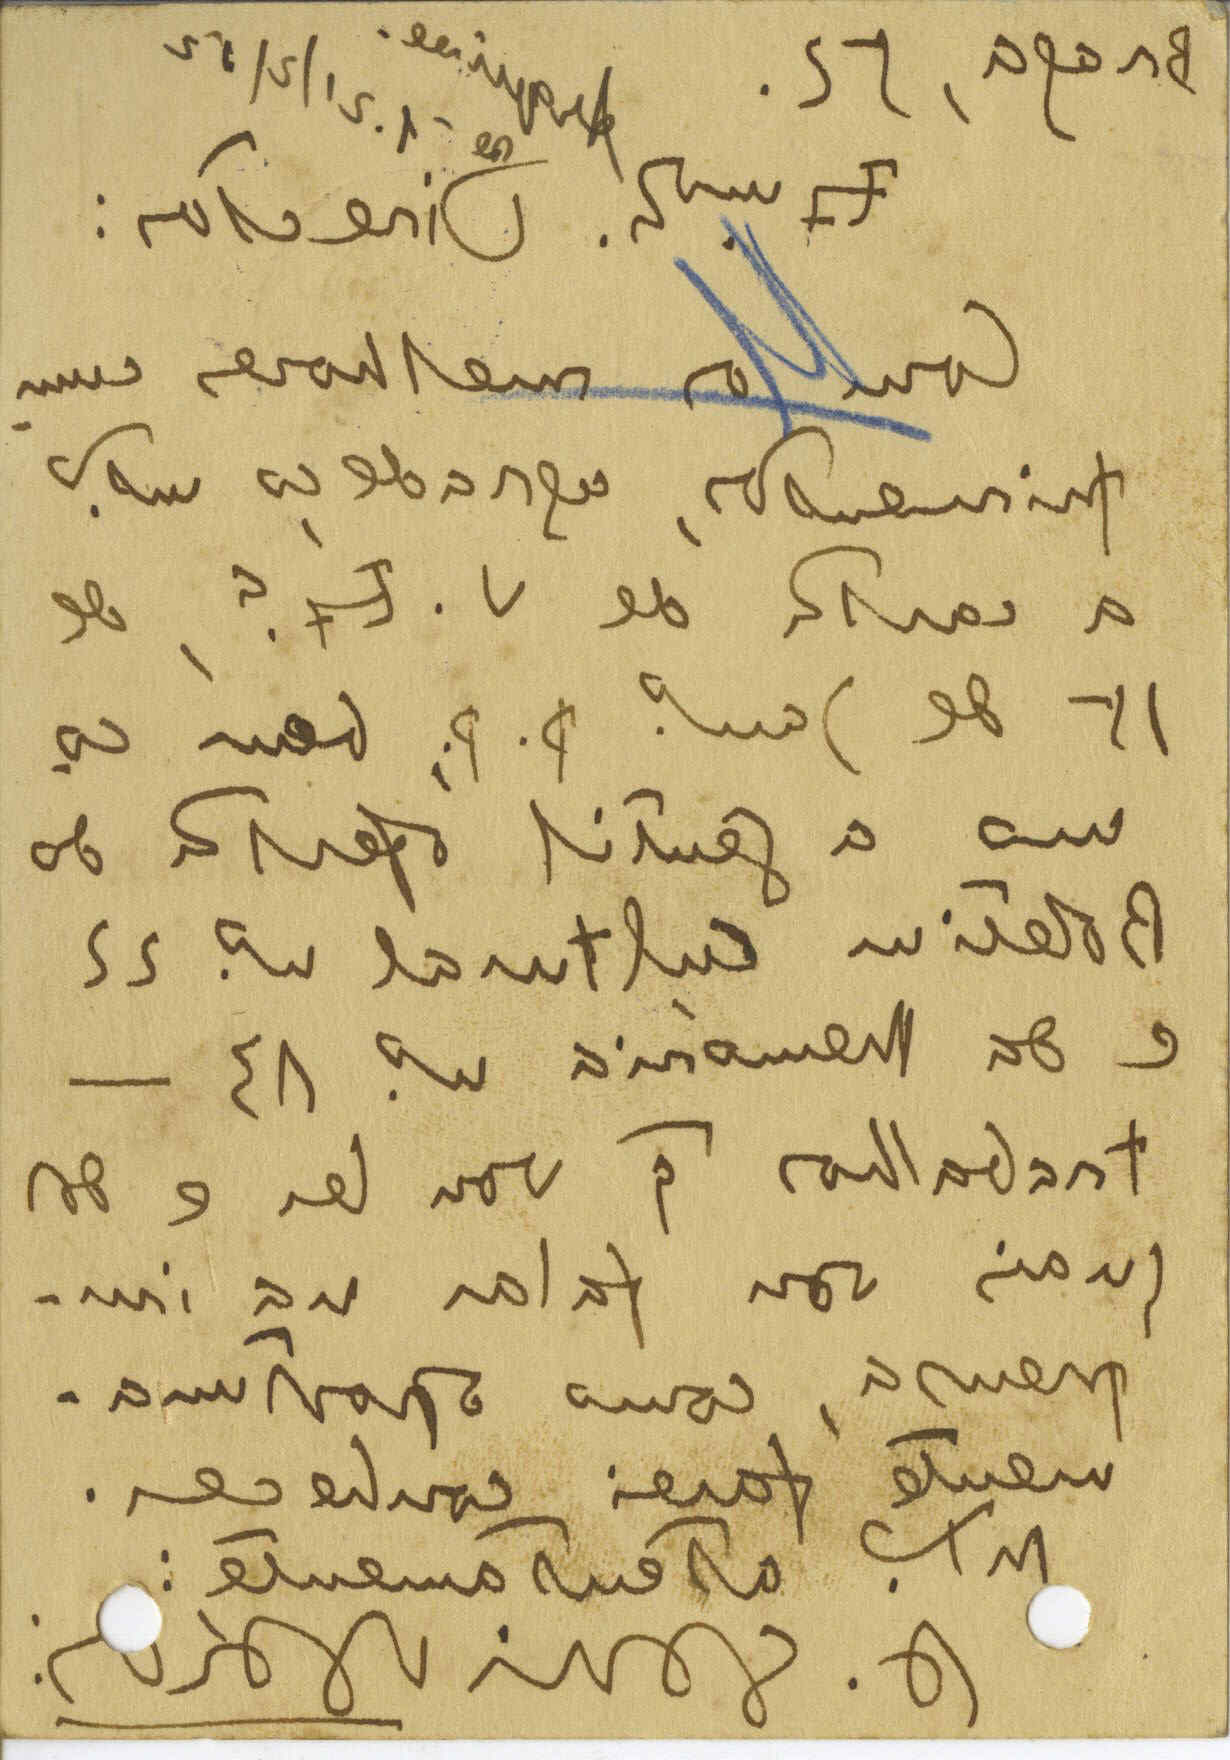 Braga, 25.
Ex.mo Sr. Director:
Com os melhores cum-
primentos, agradeço mt.º
a carta de V. Ex.ª, de
17 de Janº p.p., bem co-
mo a gentil oferta do
Boletim Cultural nº 22
e da Memória nº 13 —
trabalhos q vou ler e do
quais vou falar na im-
prensa, como oportuna-
mente farei conhecer.
Mtº atentamente: